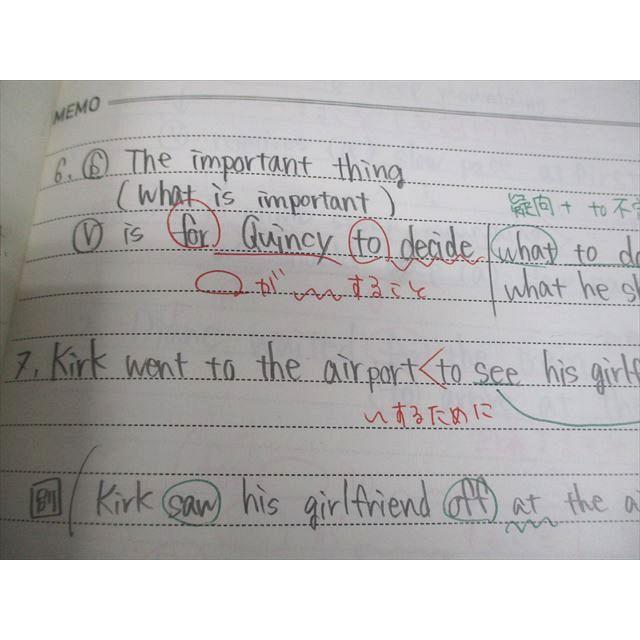 MEMO
6. Ⓢ The important thing
(What is important)
疑問 + to 不定
Ⓥ is for Quincy to decide what to do
what he sh
が すること
7. Kirk went to the airport to see his girlf
〜するために
別 Kirk saw his girlfriend off at the ai